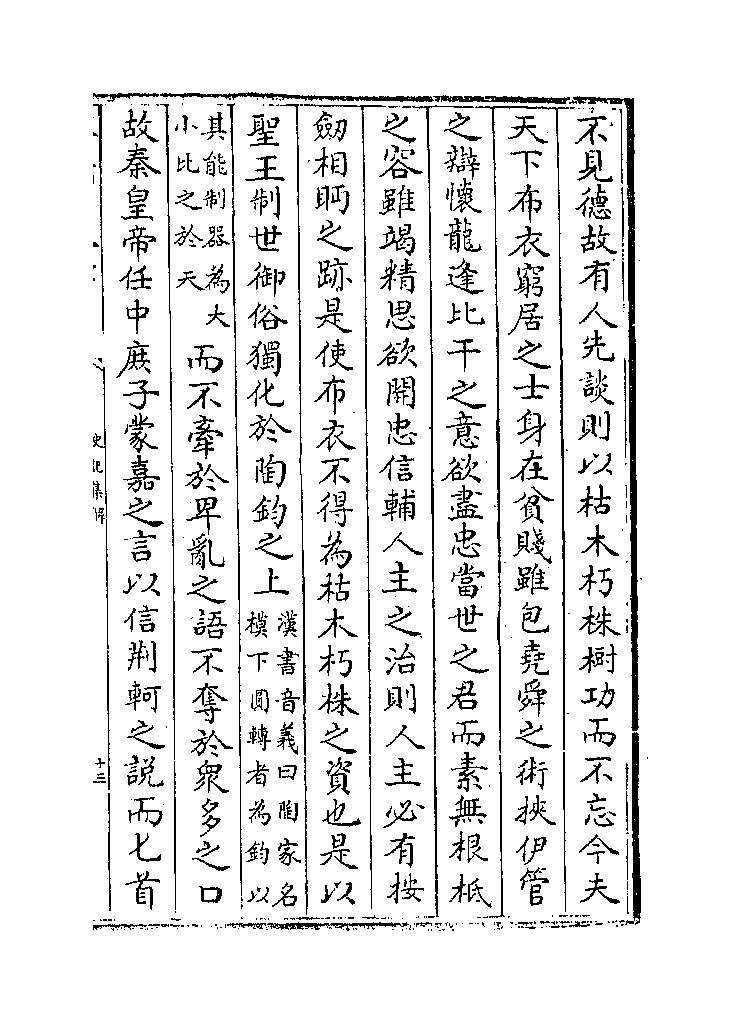 不見德故有人先談則以枯木朽株樹功而不忘今夫
天下布衣窮居之士身在貧賤雖包堯舜之術挾伊管
之辯懷龍逢比干之意欲盡忠當世之君而素無根柢
之容雖竭精思欲開忠信輔人主之治則人主必有按
劒相眄之跡是使布衣不得為枯木朽株之資也是以
聖王制世御俗獨化於陶鈞之上漢書音義曰陶家名模下圓轉者為鈞以
其能制器為大小比之於天而不牽於卑亂之語不奪於衆多之口
故秦皇帝任中庶子蒙嘉之言以信荆軻之說而匕首
史記集解
十三